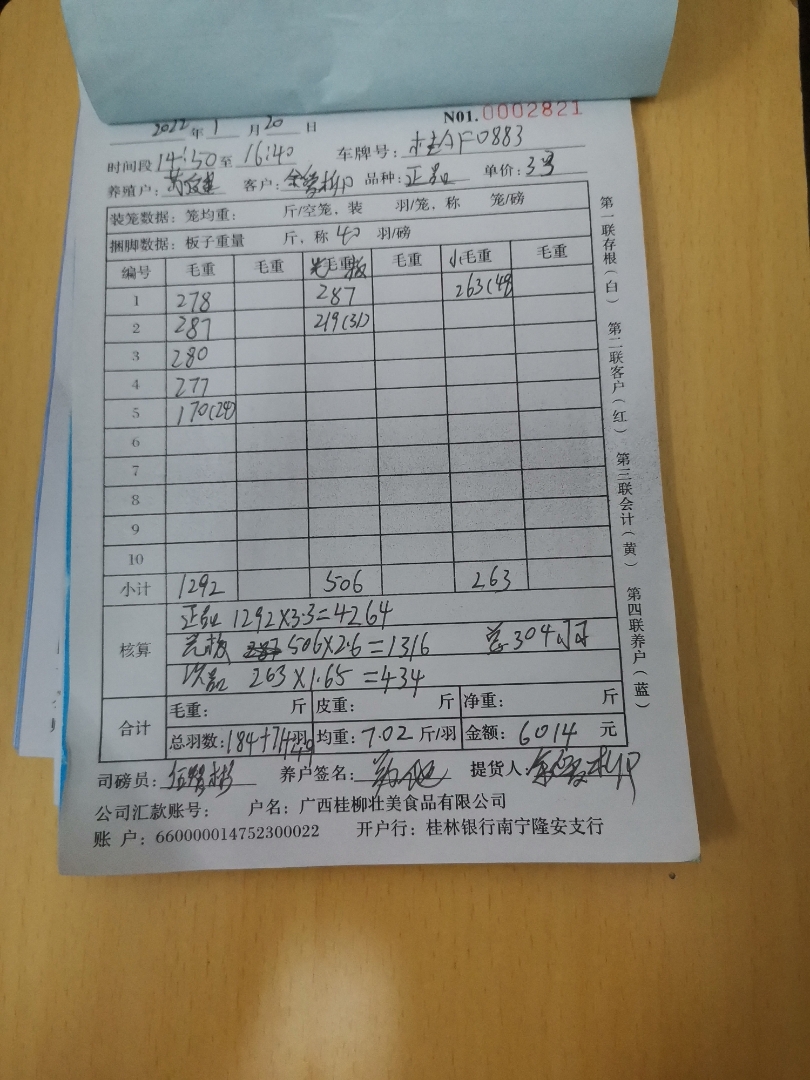 N01.0002821
2022 年 1 月 20 日
时间段 14:50 至 16:40 车牌号: 桂AF0883
养殖户: 客户: 品种: 正品 单价: 3.3
装笼数据: 笼均重: 斤/空笼, 装 羽/笼, 称 笼/磅
捆脚数据: 板子重量 斤, 称 40 羽/磅
编号 毛重 毛重 毛重 毛重 小毛重 毛重
1 278 287 263(49
2 287 219(31)
3 280
4 277
5 170(24)
6
7
8
9
10
小计 1292 506 263
核算
正品 1292×3.3=4264
506×2.6=1316 总304羽
次品 263×1.65=434
合计 毛重: 斤 皮重: 斤 净重: 斤
总羽数: 184+71+49 羽 均重: 7.02 斤/羽 金额: 6014 元
司磅员: 养户签名: 提货人:
公司汇款账号: 户名: 广西桂柳壮美食品有限公司
账 户: 660000014752300022 开户行: 桂林银行南宁隆安支行
第一联存根(白) 第二联客户(红) 第三联会计(黄) 第四联养户(蓝)